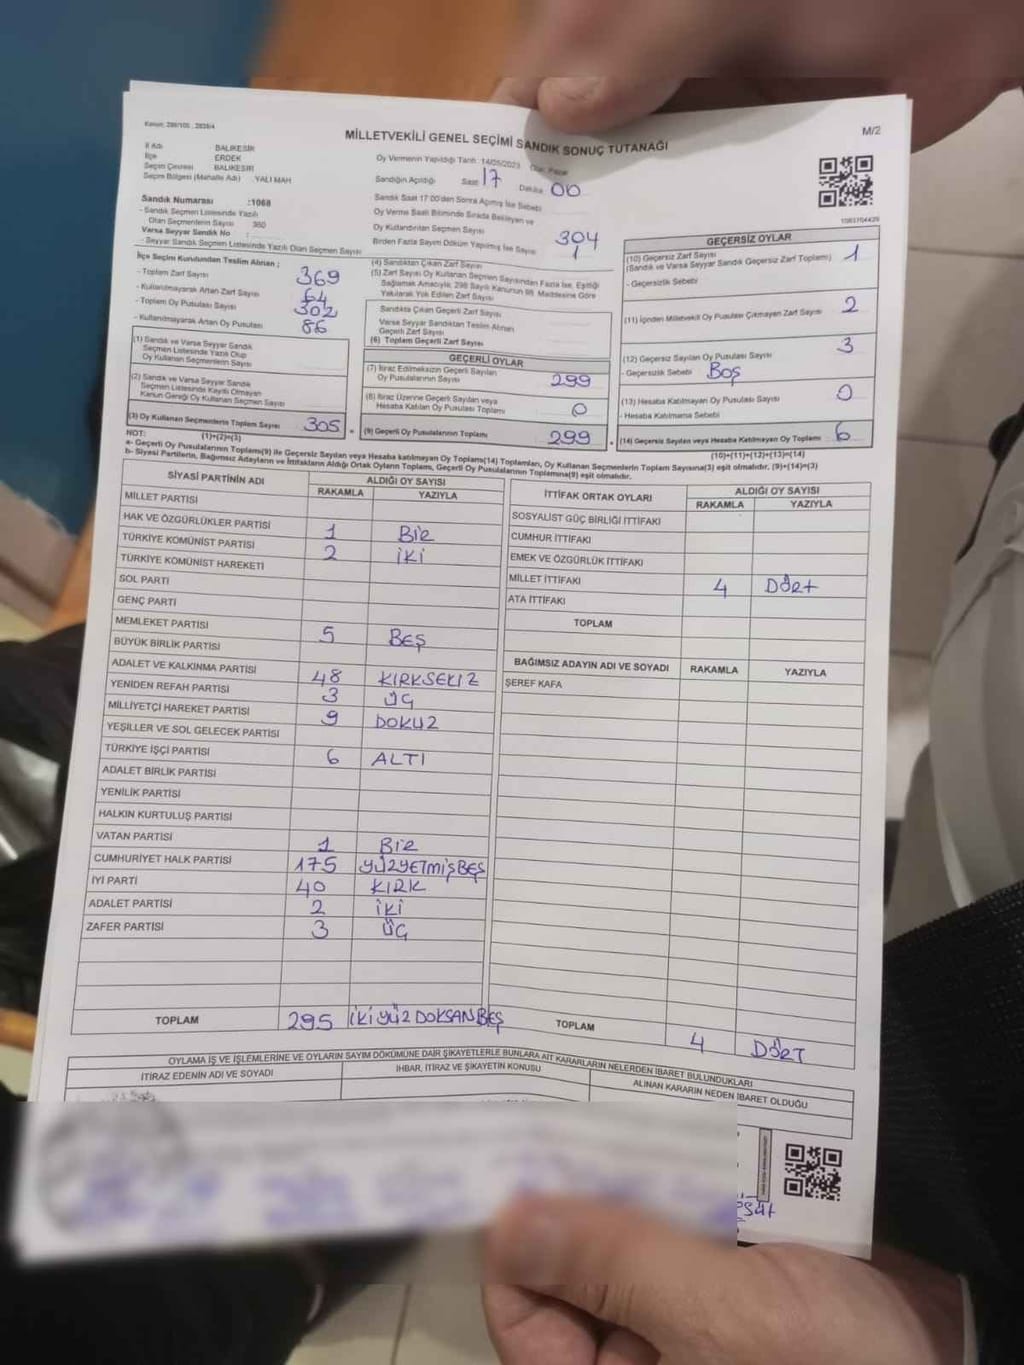 Kanun: 298/105 , 2839/4
M/2
MİLLETVEKİLİ GENEL SEÇİMİ SANDIK SONUÇ TUTANAĞI
İl Adı BALIKESİR
İlçe ERDEK
Seçim Çevresi BALIKESİR
Seçim Bölgesi (Mahalle Adı) : YALI MAH
Oy Vermenin Yapıldığı Tarih :14/05/2023
Sandığın Açıldığı Saat 17 Dakika 00
Sandık Numarası :1068
- Sandık Seçmen Listesinde Yazılı
Olan Seçmenlerin Sayısı 360
Varsa Seyyar Sandık No :
- Seyyar Sandık Seçmen Listesinde Yazılı Olan Seçmen Sayısı
Sandık Saat 17:00'den Sonra Açılmış İse Sebebi
Oy Verme Saati Bitiminde Sırada Bekleyen ve
Oy Kullandırılan Seçmen Sayısı
Birden Fazla Sayım Döküm Yapılmış İse Sayısı
İlçe Seçim Kurulundan Teslim Alınan ;
- Toplam Zarf Sayısı 369
- Kullanılmayarak Artan Zarf Sayısı 64
- Toplam Oy Pusulası Sayısı 302
- Kullanılmayarak Artan Oy Pusulası 86
(1) Sandık ve Varsa Seyyar Sandık
Seçmen Listesinde Yazılı Olup
Oy Kullanan Seçmenlerin Sayısı
(2) Sandık ve Varsa Seyyar Sandık
Seçmen Listesinde Kayıtlı Olmayan
Kanun Gereği Oy Kullanan Seçmen Sayısı
(3) Oy Kullanan Seçmenlerin Toplam Sayısı 305
(1)+(2)=(3)
(4) Sandıktan Çıkan Zarf Sayısı 304
(5) Zarf Sayısı Oy Kullanan Seçmen Sayısından Fazla İse, Eşitliği 1
Sağlamak Amacıyla, 298 Sayılı Kanunun 98. Maddesine Göre
Yakılarak Yok Edilen Zarf Sayısı
Sandıkta Çıkan Geçerli Zarf Sayısı
Varsa Seyyar Sandıktan Teslim Alınan
Geçerli Zarf Sayısı
(6) Toplam Geçerli Zarf Sayısı
GEÇERLİ OYLAR
(7) İtiraz Edilmeksizin Geçerli Sayılan
Oy Pusulalarının Sayısı 299
(8) İtiraz Üzerine Geçerli Sayılan veya
Hesaba Katılan Oy Pusulası Toplamı 0
(9) Geçerli Oy Pusulalarının Toplamı 299
GEÇERSİZ OYLAR
(10) Geçersiz Zarf Sayısı 1
(Sandık ve Varsa Seyyar Sandık Geçersiz Zarf Toplamı)
- Geçersizlik Sebebi
(11) İçinden Milletvekili Oy Pusulası Çıkmayan Zarf Sayısı 2
(12) Geçersiz Sayılan Oy Pusulası Sayısı 3
- Geçersizlik Sebebi Boş
(13) Hesaba Katılmayan Oy Pusulası Sayısı 0
- Hesaba Katılmama Sebebi
(14) Geçersiz Sayılan veya Hesaba Katılmayan Oy Toplamı 6
(10)+(11)+(12)+(13)=(14)
NOT:
a- Geçerli Oy Pusulalarının Toplamı(9) ile Geçersiz Sayılan veya Hesaba katılmayan Oy Toplamı(14) Toplamları, Oy Kullanan Seçmenlerin Toplam Sayısına(3) eşit olmalıdır. (9)+(14)=(3)
b- Siyasi Partilerin, Bağımsız Adayların ve İttifakların Aldığı Ortak Oyların Toplamı, Geçerli Oy Pusulalarının Toplamına(9) eşit olmalıdır.
SİYASİ PARTİNİN ADI ALDIĞI OY SAYISI
RAKAMLA YAZIYLA
MİLLET PARTİSİ
HAK VE ÖZGÜRLÜKLER PARTİSİ 1 BİR
TÜRKİYE KOMÜNİST PARTİSİ 2 İKİ
TÜRKİYE KOMÜNİST HAREKETİ
SOL PARTİ
GENÇ PARTİ
MEMLEKET PARTİSİ 5 BEŞ
BÜYÜK BİRLİK PARTİSİ
ADALET VE KALKINMA PARTİSİ 48 KIRKSEKİZ
YENİDEN REFAH PARTİSİ 3 ÜÇ
MİLLİYETÇİ HAREKET PARTİSİ 9 DOKUZ
YEŞİLLER VE SOL GELECEK PARTİSİ
TÜRKİYE İŞÇİ PARTİSİ 6 ALTI
ADALET BİRLİK PARTİSİ
YENİLİK PARTİSİ
HALKIN KURTULUŞ PARTİSİ
VATAN PARTİSİ 1 BİR
CUMHURİYET HALK PARTİSİ 175 YÜZYETMİŞBEŞ
İYİ PARTİ 40 KIRK
ADALET PARTİSİ 2 İKİ
ZAFER PARTİSİ 3 ÜÇ
TOPLAM 295 İKİYÜZDOKSANBEŞ
İTTİFAK ORTAK OYLARI ALDIĞI OY SAYISI
RAKAMLA YAZIYLA
SOSYALİST GÜÇ BİRLİĞİ İTTİFAKI
CUMHUR İTTİFAKI
EMEK VE ÖZGÜRLÜK İTTİFAKI
MİLLET İTTİFAKI 4 DÖRT
ATA İTTİFAKI
TOPLAM
BAĞIMSIZ ADAYIN ADI VE SOYADI RAKAMLA YAZIYLA
ŞEREF KAFA
TOPLAM 4 DÖRT
OYLAMA İŞ VE İŞLEMLERİNE VE OYLARIN SAYIM DÖKÜMÜNE DAİR ŞİKAYETLERLE BUNLARA AİT KARARLARIN NELERDEN İBARET BULUNDUKLARI
İTİRAZ EDENİN ADI VE SOYADI
İHBAR, İTİRAZ VE ŞİKAYETİN KONUSU
ALINAN KARARIN NEDEN İBARET OLDUĞU